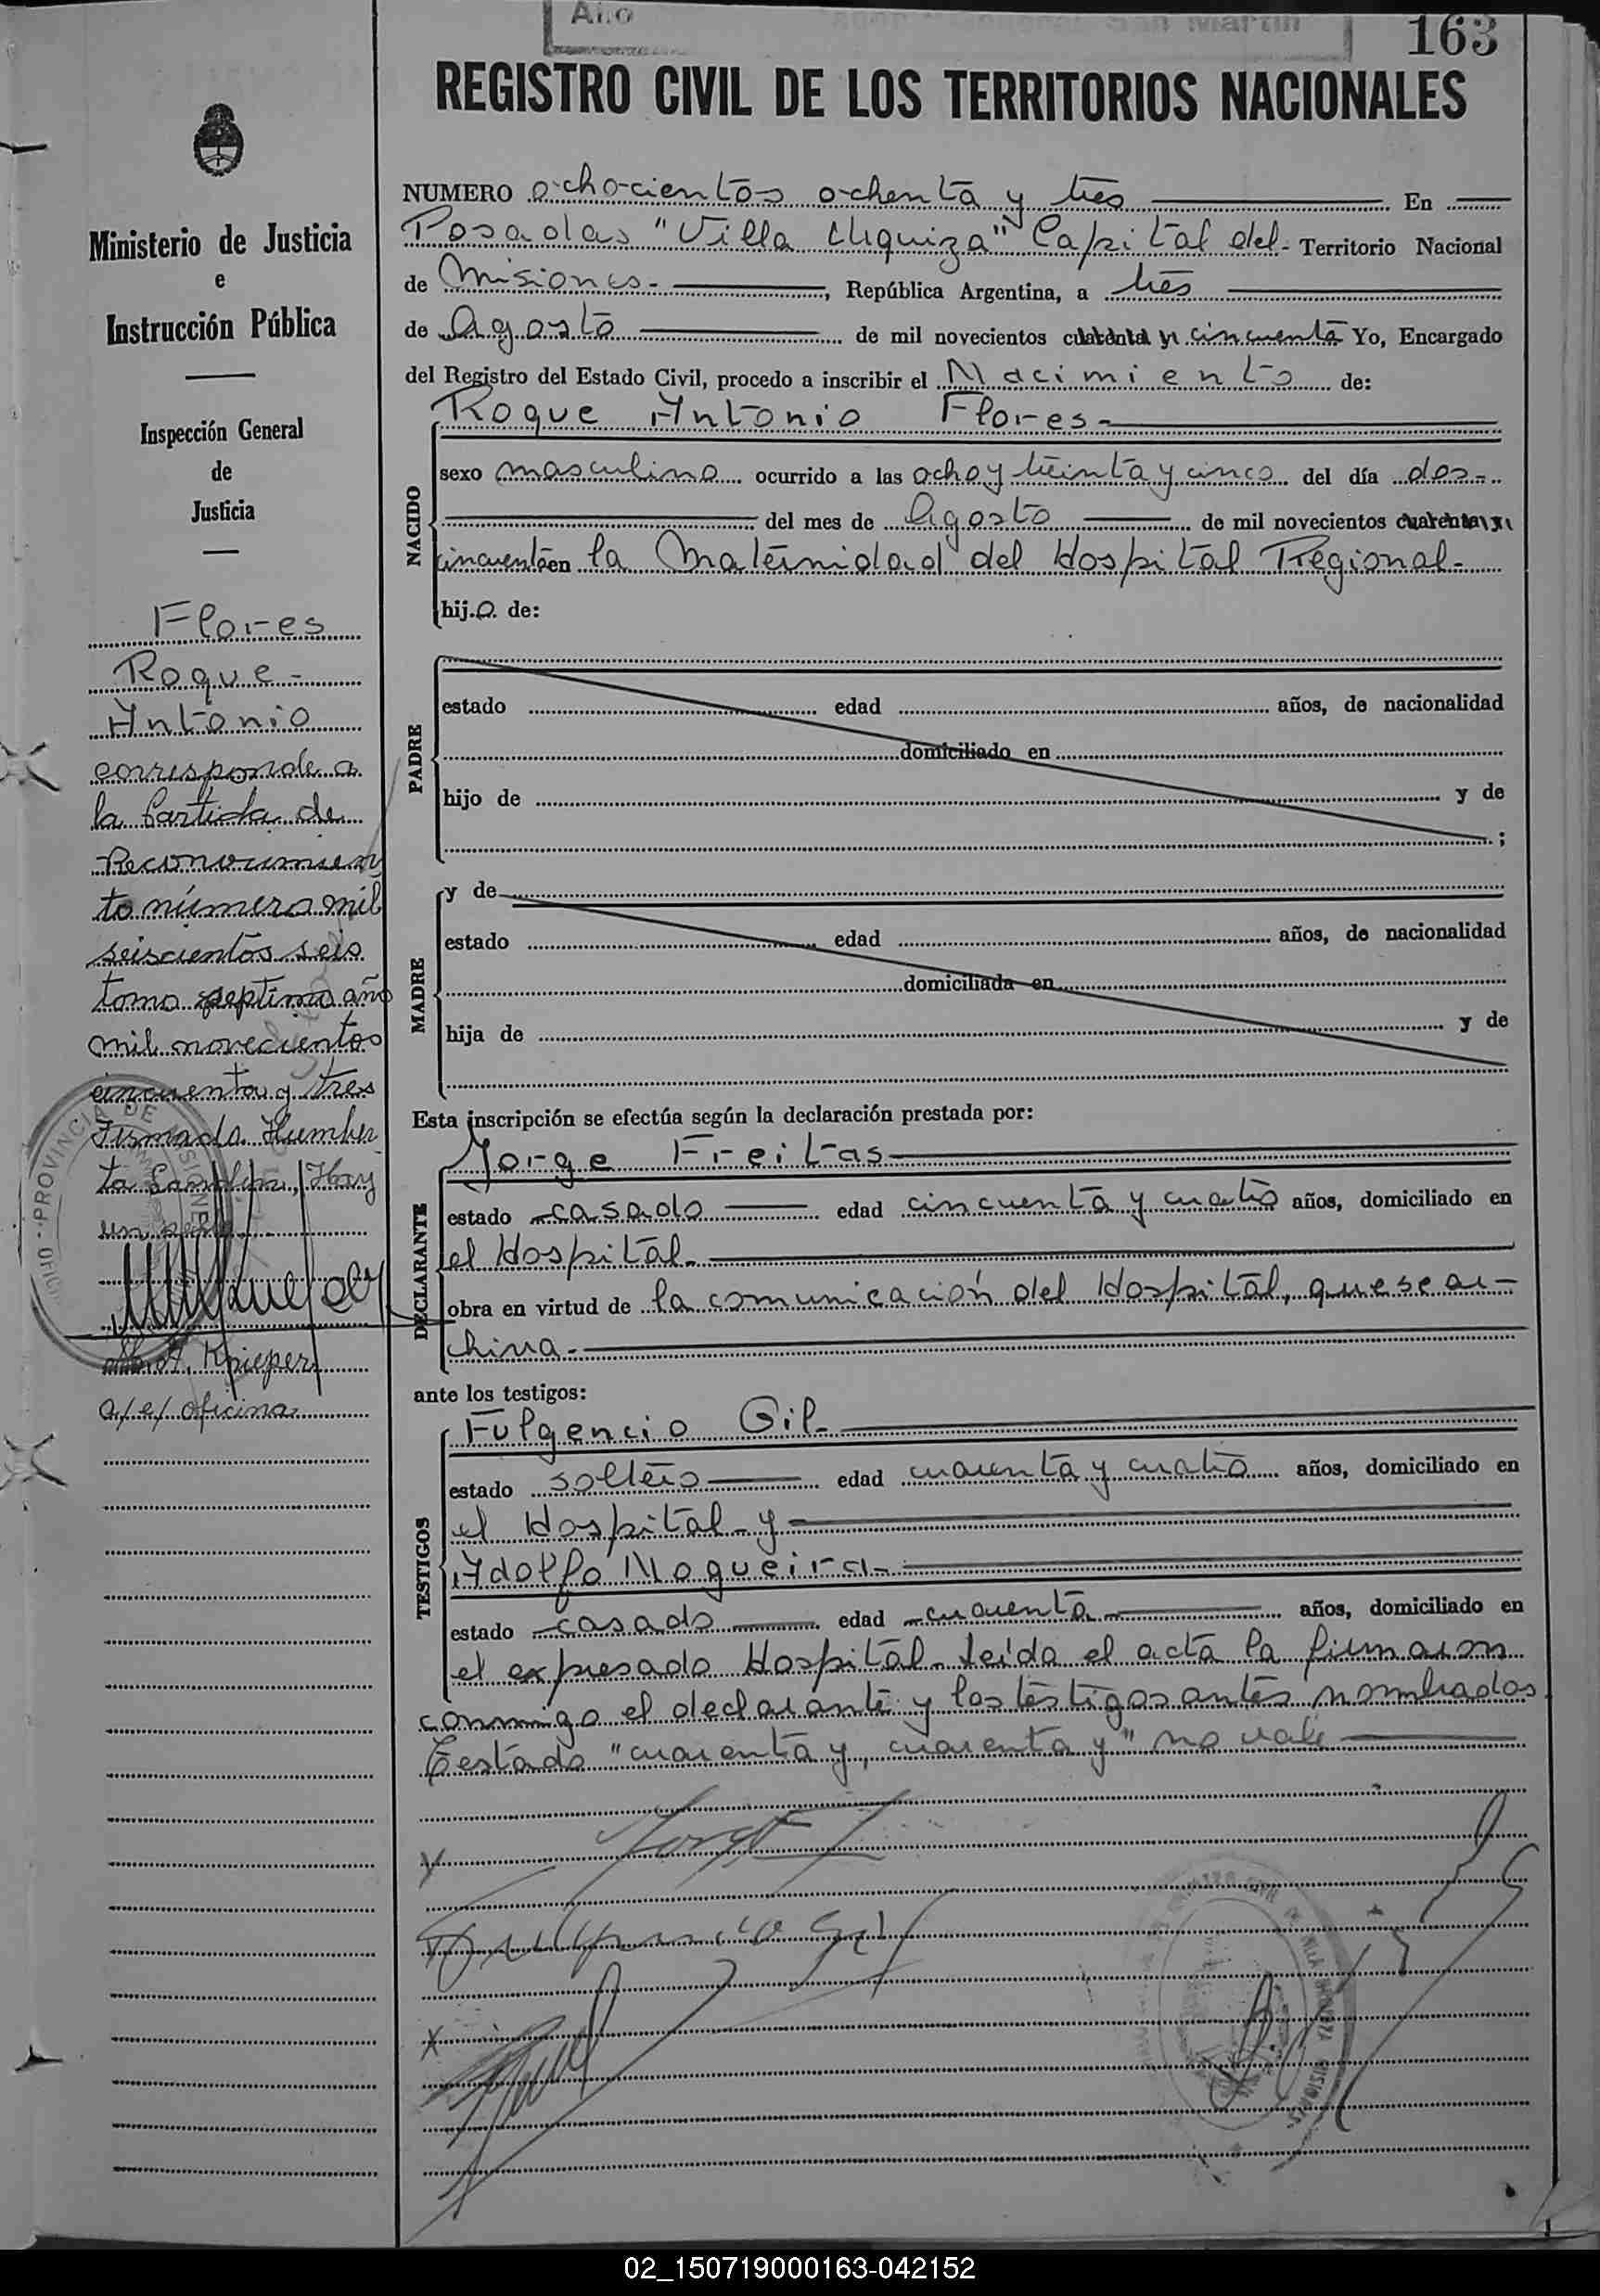 Año
163
REGISTRO CIVIL DE LOS TERRITORIOS NACIONALES
Ministerio de Justicia
e
Instrucción Pública
Inspección General
de
Justicia
Flores
Roque -
Antonio
corresponde a
la Partida de
Reconocimien
to número mil
seiscientos seis
tomo septimo año
mil novecientos
cincuenta y tres
Firmado. Humber
to Hay
un
PROVINCIA DE MISIONES
A. Knieper
a/e/ oficina
NUMERO ochocientos ochenta y tres En
Posadas "Villa Urquiza" Capital del - Territorio Nacional
de Misiones - , República Argentina, a tres
de Agosto de mil novecientos cuarenta y cincuenta Yo, Encargado
del Registro del Estado Civil, procedo a inscribir el Nacimiento de:
Roque Antonio Flores -
NACIDO
sexo masculino ocurrido a las ocho y treinta y cinco del día dos -
del mes de Agosto de mil novecientos cuarenta y
cincuenta en la Maternidad del Hospital Regional -
hij.o. de:
PADRE
estado edad años, de nacionalidad
domiciliado en
hijo de y de
;
MADRE
y de
estado edad años, de nacionalidad
domiciliada en
hija de y de
Esta inscripción se efectúa según la declaración prestada por:
DECLARANTE
Jorge Freitas
estado casado edad cincuenta y cuatro años, domiciliado en
el Hospital -
obra en virtud de la comunicación del Hospital, que se ar-
chiva -
ante los testigos:
TESTIGOS
Fulgencio Gil -
estado soltero edad cuarenta y cuatro años, domiciliado en
el Hospital - y
Adolfo Nogueira -
estado casado edad cuarenta años, domiciliado en
el expresado Hospital - Leída el acta la firmaron
conmigo el declarante y los testigos antes nombrados
Testado "cuarenta y, cuarenta y" no vale
Fulgencio Gil
02_150719000163-042152